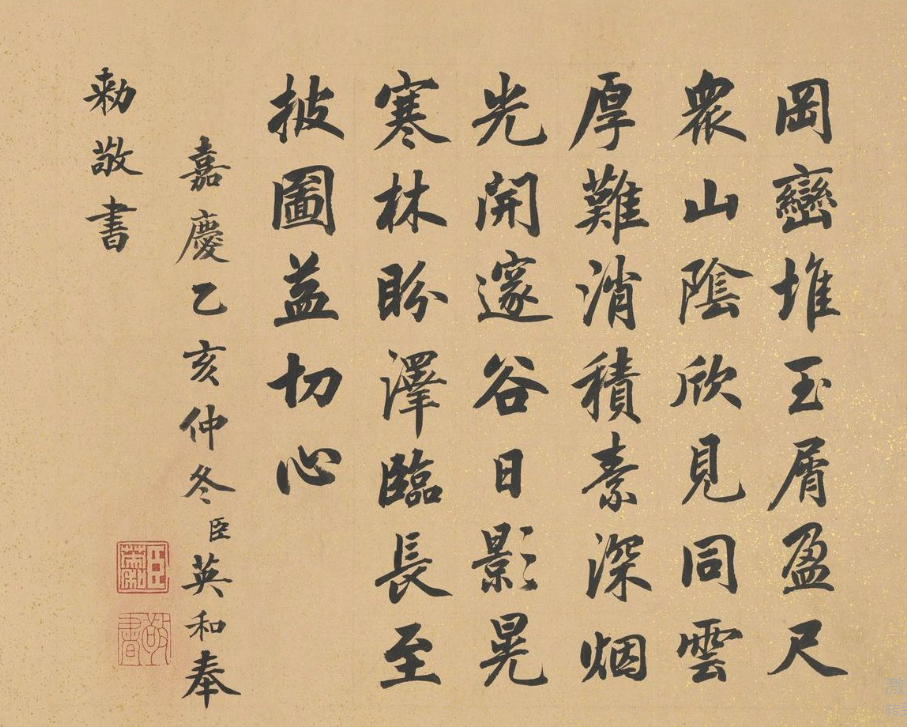 岡巒堆玉屑盈尺
衆山陰欣見同雲
厚難消積素深烟
光開邃谷日影晃
寒林盼澤臨長至
披圖益切心
嘉慶乙亥仲冬臣英和奉
勑敬書
臣英和
敬書